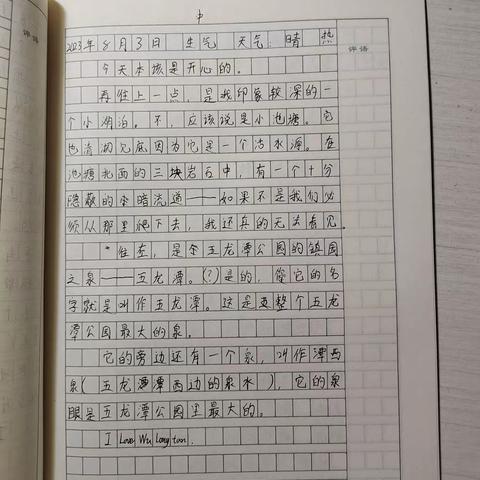 中
2023年8月3日 生气 天气:晴 热
评语
今天本该是开心的。
再往上一点,是我印象较深的一
个小湖泊。不,应该说是小池塘。它
也清彻见底因为它是一个活水源。在
池塘北面的三块岩石中,有一个十分
隐蔽的全暗流道——如果不是我们必
须从那里爬下去,我还真的无法看见。
往东,是全五龙潭公园的镇园
之泉——五龙潭。(?)是的,您它的名
字就是叫作五龙潭。这是更整个五龙
潭公园最大的泉。
它的旁边还有一个泉,叫作潭西
泉(五龙潭潭西边的泉水),它的泉
眼是五龙潭公园里最大的。
I Love Wu Long tan.